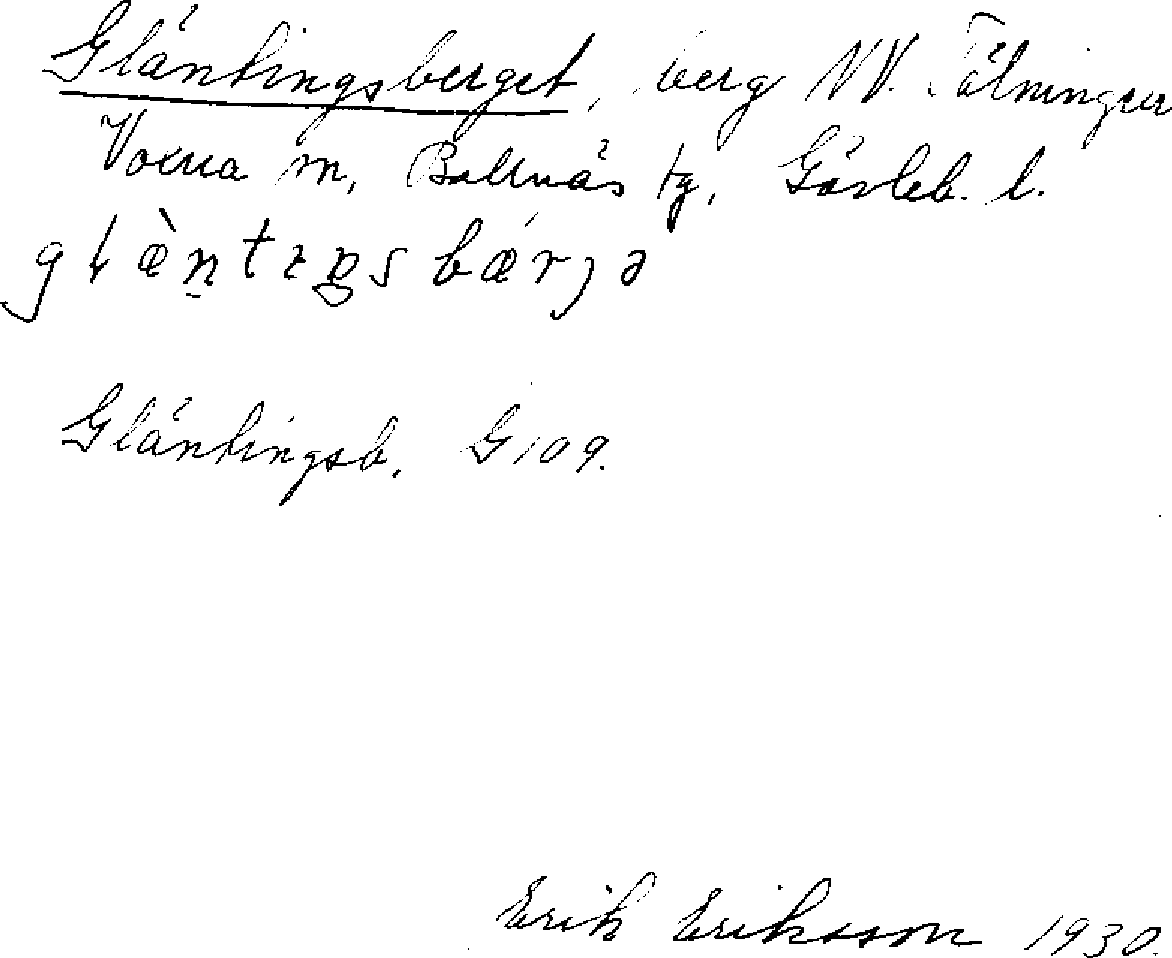 Gläntingsberget, berg NV. Tälningen
Voxna m, Bollnäs tg, Gävleb. l.
Gläntingsb. G 109.
Erik Eriksson 1930.